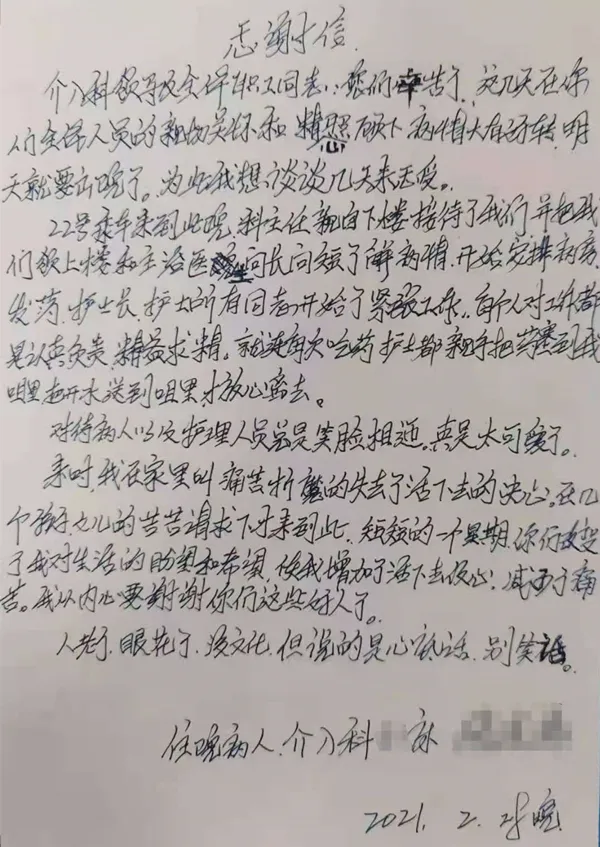 感谢信
介入科领导及全体职工同志:您们辛苦了,这几天在你
们全体人员的亲切关怀和精心照顾下病情大有好转,明
天就要出院了。为此我想谈谈几天来感受。
22号乘车来到此院,科主任亲自下楼接待了我们,并把我
们领上楼和主治医生问长问短了解病情,开始安排病房,
发药,护士长,护士所有同志开始了紧张工作,每个人对工作都
是认真负责,精益求精。就连每次吃药护士都亲手把药塞到我
咀里,把开水送到咀里才放心离去。
对待病人以及护理人员总是笑脸相迎,真是太可爱了。
来时,我在家里叫痛苦折磨的失去了活下去的决心。在几
个孩子,女儿的苦苦请求下才来到此,短短的一个星期你们改变
了我对生活的盼望和希望,使我增加了活下去信心,减西了痛
苦。我从内心要谢谢你们这些好人了。
人老了,眼花了,没文化,但说的是心底话,别笑话。
住院病人,介入科 床
2021. 2. 晚